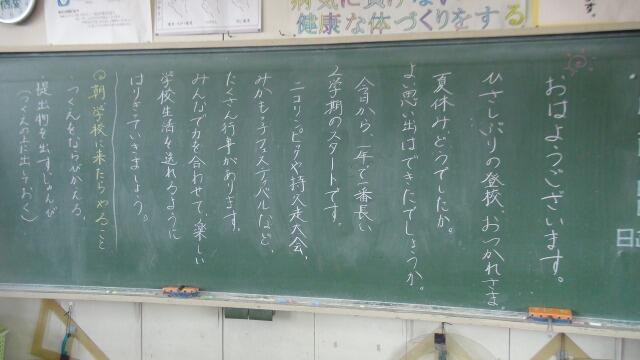 病気に負けない
健康な体づくりをする
おはようございます。
ひさしぶりの登校、おつかれさま。
夏休みどうでしたか。
よい思い出はできたでしょうか。
今日から、一年で一番長い
2学期のスタートです。
ニコリンピックや持久走大会、
みかもっ子フェスティバルなど、
たくさん行事があります。
みんなで力を合わせて、楽しい
学校生活を送れるように
はりきっていきましょう。
◎朝、学校に来たらやること
・つくえをならびかえる
・提出物を出すじゅんび
(つくえの上に出しておく)